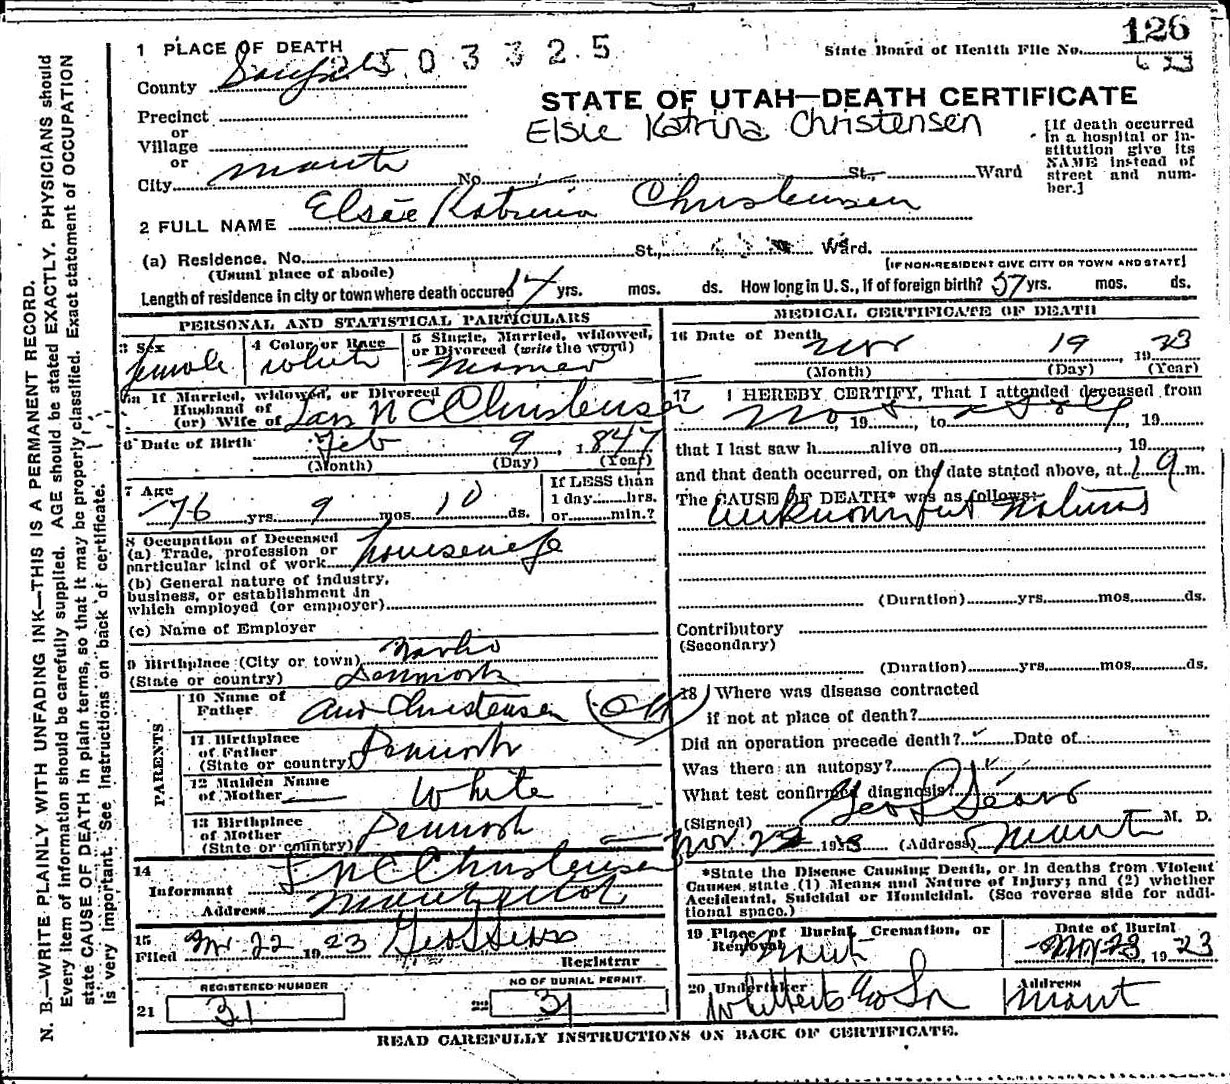 126
State Board of Health File No.
1 PLACE OF DEATH
2503325
County Sanpete
STATE OF UTAH—DEATH CERTIFICATE
Elsie Katrina Christensen
Precinct
or
Village
or
City Manti No. St., Ward
[If death occurred
in a hospital or in-
stitution give its
NAME instead of
street and num-
ber.]
2 FULL NAME Elsie Katrina Christensen
(a) Residence. No. St., Ward.
(Usual place of abode)
[IF NON-RESIDENT GIVE CITY OR TOWN AND STATE]
Length of residence in city or town where death occured 14 yrs. mos. ds. How long in U.S., if of foreign birth? 57 yrs. mos. ds.
PERSONAL AND STATISTICAL PARTICULARS
3 Sex
female
4 Color or Race
white
5 Single, Married, widowed,
or Divorced (write the word)
Married
5a If Married, widowed, or Divorced
Husband of
(or) Wife of Lars N C Christensen
6 Date of Birth Feb 9, 1847
(Month) (Day) (Year)
7 Age
76 yrs. 9 mos. 10 ds.
If LESS than
1 day hrs.
or min.?
8 Occupation of Deceased
(a) Trade, profession or
particular kind of work housewife
(b) General nature of industry,
business, or establishment in
which employed (or employer)
(c) Name of Employer
9 Birthplace (City or town)
(State or country) Denmark
PARENTS
10 Name of
Father Christensen
11 Birthplace
of Father
(State or country) Denmark
12 Maiden Name
of Mother White
13 Birthplace
of Mother
(State or country) Denmark
14
Informant L N C Christensen
Address Manti Utah
15
Filed Nov 22 1923 Geo L Sears
Registrar
REGISTERED NUMBER
21 31
NO OF BURIAL PERMIT
22 31
MEDICAL CERTIFICATE OF DEATH
16 Date of Death
Nov 19, 1923
(Month) (Day) (Year)
17 I HEREBY CERTIFY, That I attended deceased from
Not, 19, to at all, 19
that I last saw h alive on, 19
and that death occurred, on the date stated above, at 1 9 m.
The CAUSE OF DEATH* was as follows:
Unknown but natural
(Duration) yrs. mos. ds.
Contributory
(Secondary)
(Duration) yrs. mos. ds.
18 Where was disease contracted
if not at place of death?
Did an operation precede death? Date of
Was there an autopsy?
What test confirmed diagnosis?
(Signed) Geo L Sears M. D.
Nov 22 1923 (Address) Manti
*State the Disease Causing Death, or in deaths from Violent
Causes state (1) Means and Nature of Injury; and (2) whether
Accidental, Suicidal or Homicidal. (See reverse side for addi-
tional space.)
19 Place of Burial Cremation, or
Removal Manti
Date of Burial
Nov 23 1923
20 Undertaker
Address
Manti
READ CAREFULLY INSTRUCTIONS ON BACK OF CERTIFICATE.
N. B.—WRITE PLAINLY WITH UNFADING INK—THIS IS A PERMANENT RECORD.
Every item of information should be carefully supplied. AGE should be stated EXACTLY. PHYSICIANS should
state CAUSE OF DEATH in plain terms, so that it may be properly classified. Exact statement of OCCUPATION
is very important. See instructions on back of certificate.